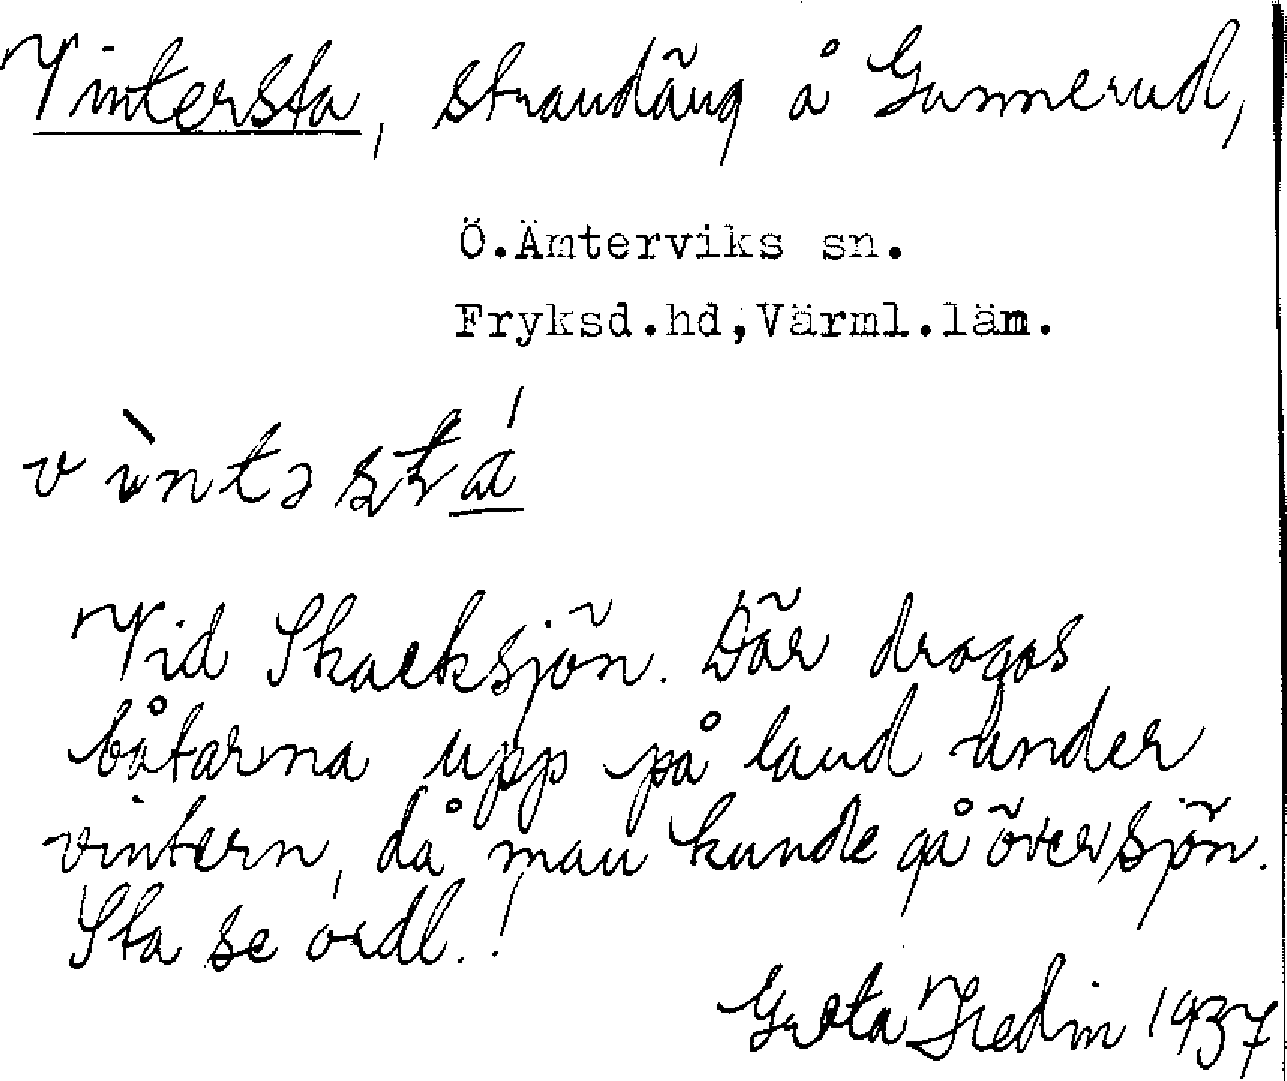 Vintersta, strandäng å Gunnerud,
Ö.Ämterviks sn.
Fryksd.hd,Värml.läm.
Vid Skacksjön. Där dragas
båtarna upp på land under
vintern, då man kunde gå över sjön.
Sta se ordl.!
Greta Hedin 1937